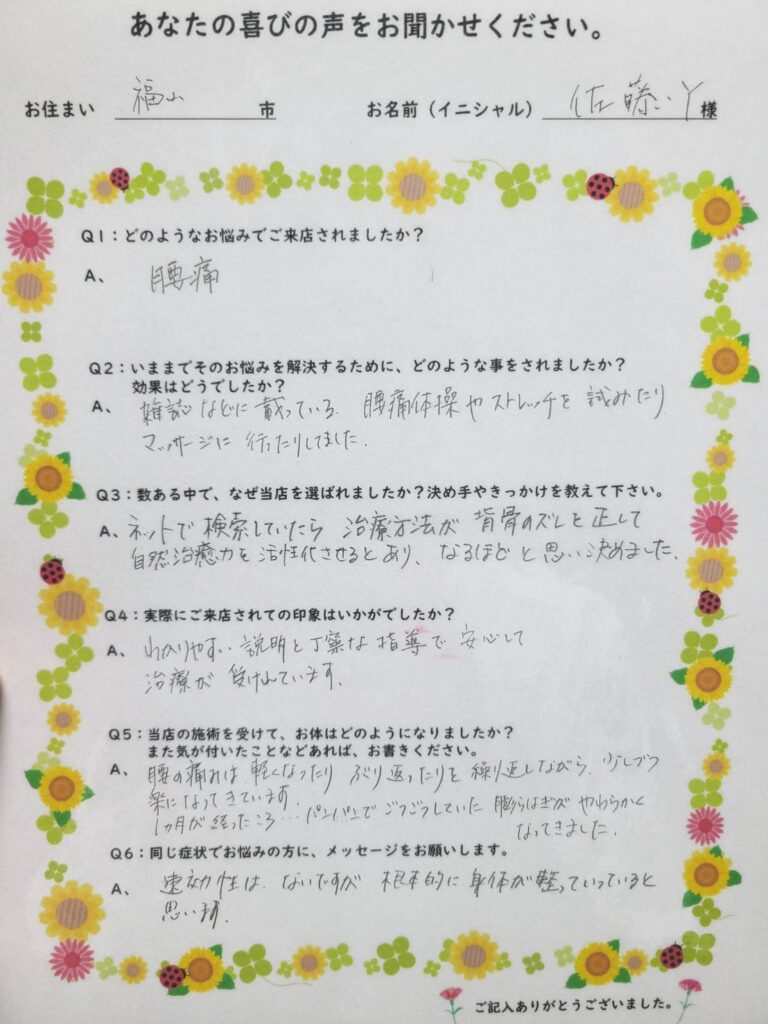 あなたの喜びの声をお聞かせください。
お住まい 福山 市 お名前（イニシャル） 佐藤 Y 様
Q1：どのようなお悩みでご来店されましたか？
A、 腰痛
Q2：いままでそのお悩みを解決するために、どのような事をされましたか？
効果はどうでしたか？
A、 雑誌などに載っている 腰痛体操やストレッチを 試みたり
マッサージに 行ったりしてました。
Q3：数ある中で、なぜ当店を選ばれましたか？決め手やきっかけを教えて下さい。
A、ネットで検索していたら 治療方法が 背骨のズレを正して
自然治癒力を活性化させるとあり、なるほどと思い決めました。
Q4：実際にご来店されての印象はいかがでしたか？
A、 わかりやすい説明と丁寧な指導で 安心して
治療が 受けれています。
Q5：当店の施術を受けて、お体はどのようになりましたか？
また気が付いたことなどあれば、お書きください。
A、 腰の痛れは 軽くなったり ぶり返ったりを繰り返しながら、少しづつ
楽になってきています。
1ヵ月が経ったころ…パンパンでごつごつしていた 膨らはぎが やわらかく
なってきました。
Q6：同じ症状でお悩みの方に、メッセージをお願いします。
A、 速効性は ないですが 根本的に 身体が整っていっていると
思います。
ご記入ありがとうございました。